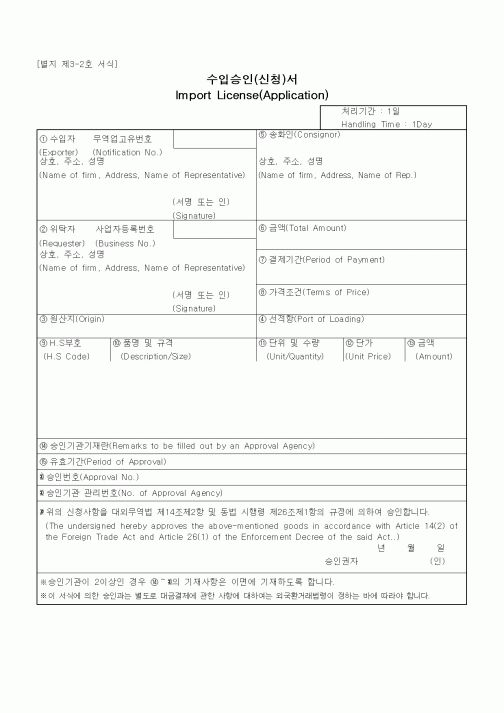 [별지 제3-2호 서식]
수입승인(신청)서
Import License(Application)
처리기간 : 1일
Handling Time : 1Day
① 수입자 무역업고유번호
(Exporter) (Notification No.)
상호, 주소, 성명
(Name of firm, Address, Name of Representative)
(서명 또는 인)
(Signature)
⑤ 송화인(Consignor)
상호, 주소, 성명
(Name of firm, Address, Name of Rep.)
② 위탁자 사업자등록번호
(Requester) (Business No.)
상호, 주소, 성명
(Name of firm, Address, Name of Representative)
(서명 또는 인)
(Signature)
⑥ 금액(Total Amount)
⑦ 결제기간(Period of Payment)
⑧ 가격조건(Terms of Price)
③ 원산지(Origin)
④ 선적항(Port of Loading)
⑨ H.S부호 ⑩ 품명 및 규격 ⑪ 단위 및 수량 ⑫ 단가 ⑬ 금액
(H.S Code) (Description/Size) (Unit/Quantity) (Unit Price) (Amount)
⑭ 승인기관기재란(Remarks to be filled out by an Approval Agency)
⑮ 유효기간(Period of Approval)
승인번호(Approval No.)
승인기관 관리번호(No. of Approval Agency)
위의 신청사항을 대외무역법 제14조제2항 및 동법 시행령 제26조제1항의 규정에 의하여 승인합니다.
(The undersigned hereby approves the above-mentioned goods in accordance with Article 14(2) of
the Foreign Trade Act and Article 26(1) of the Enforcement Decree of the said Act..)
년 월 일
승인권자 (인)
※승인기관이 2이상인 경우 ⑭~ 의 기재사항은 이면에 기재하도록 합니다.
※이 서식에 의한 승인과는 별도로 대금결제에 관한 사항에 대하여는 외국환거래법령이 정하는 바에 따라야 합니다.